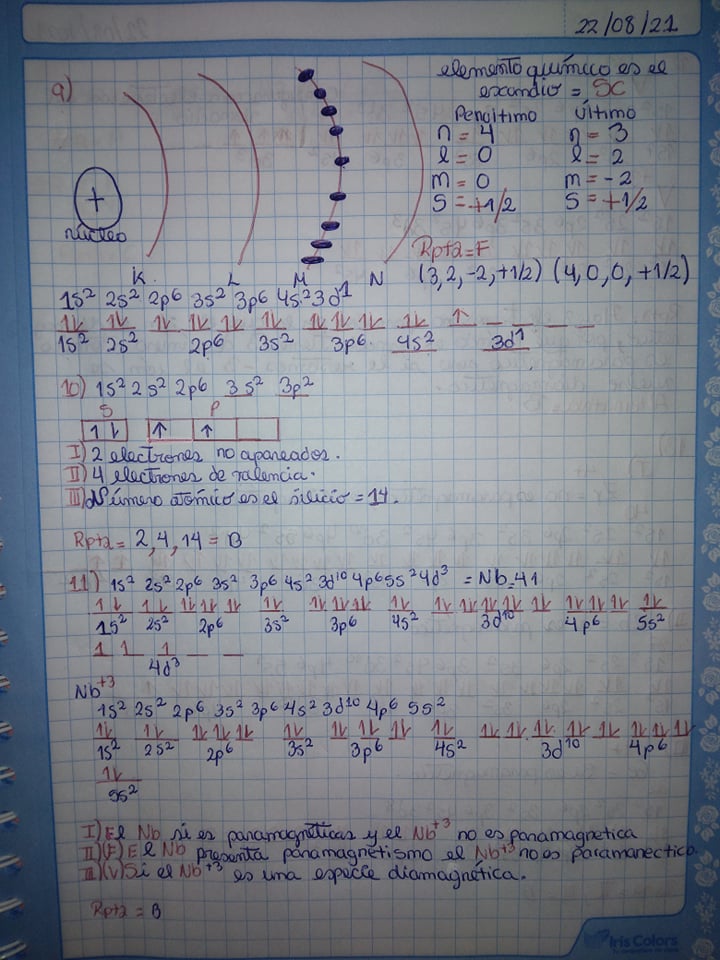 22/08/21
9)
elemento químico es el
escandio = SC
Penúltimo Último
n = 4 n = 3
l = 0 l = 2
m = 0 m = -2
S = +1/2 S = +1/2
+
núcleo
K L M N
Rpta = F
(3,2,-2,+1/2) (4,0,0,+1/2)
1s² 2s² 2p⁶ 3s² 3p⁶ 4s² 3d¹
1s² 2s² 2p⁶ 3s² 3p⁶ 4s² 3d¹
10) 1s² 2s² 2p⁶ 3s² 3p²
S P
I) 2 electrones no apareados.
II) 4 electrones de valencia.
III) Número atómico es el silicio = 14.
Rpta = 2,4,14 = B
11) 1s² 2s² 2p⁶ 3s² 3p⁶ 4s² 3d¹⁰ 4p⁶ 5s² 4d³ = Nb=41
1s² 2s² 2p⁶ 3s² 3p⁶ 4s² 3d¹⁰ 4p⁶ 5s²
4d³
Nb⁺³
1s² 2s² 2p⁶ 3s² 3p⁶ 4s² 3d¹⁰ 4p⁶ 5s²
1s² 2s² 2p⁶ 3s² 3p⁶ 4s² 3d¹⁰ 4p⁶
5s²
I) El Nb si es paramagnéticas y el Nb⁺³ no es paramagnetica
II)(F) El Nb presenta paramagnetismo el Nb⁺³ no es paramanectico.
III)(V) Si el Nb⁺³ es una especie diamagnética.
Rpta = B
Iris Colors